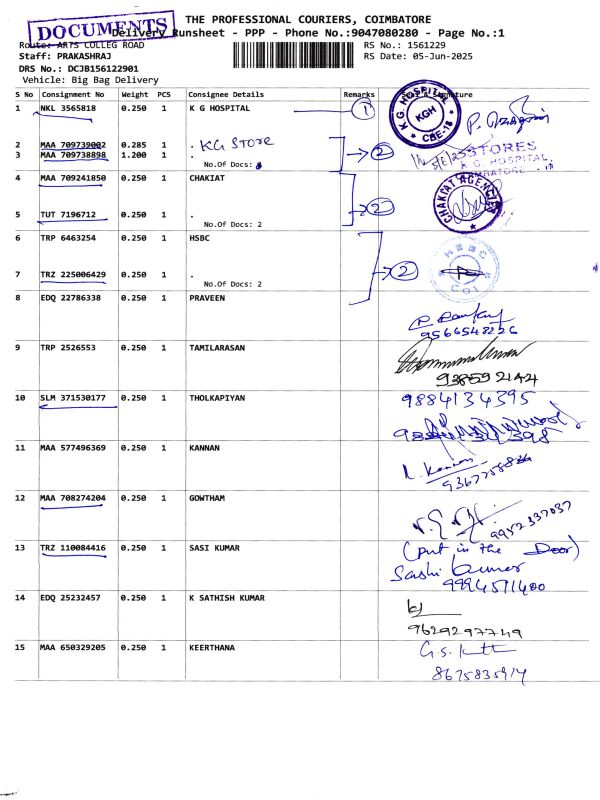 DOCUMENTS
THE PROFESSIONAL COURIERS, COIMBATORE
Delivery Runsheet - PPP - Phone No.:9047080280 - Page No.:1
Route: ARTS COLLEG ROAD
RS No.: 1561229
Staff: PRAKASHRAJ
RS Date: 05-Jun-2025
DRS No.: DCJB156122901
Vehicle: Big Bag Delivery
S No Consignment No Weight PCS Consignee Details Remarks Signature
1 NKL 3565818 0.250 1 K G HOSPITAL 1
K.G. HOSPITAL KGH CBE-18
2 MAA 709739002 0.285 1 . KG STORE
3 MAA 709738898 1.200 1 . 2
STORES
K.G. HOSPITAL
No.Of Docs:
4 MAA 709241850 0.250 1 CHAKIAT
CHAKIAT AGENCIES
5 TUT 7196712 0.250 1 . 2
No.Of Docs: 2
6 TRP 6463254 0.250 1 HSBC
HSBC
7 TRZ 225006429 0.250 1 . 2
No.Of Docs: 2
8 EDQ 22786338 0.250 1 PRAVEEN
9566548226
9 TRP 2526553 0.250 1 TAMILARASAN
93859 2142
10 SLM 371530177 0.250 1 THOLKAPIYAN 9884134395
11 MAA 577496369 0.250 1 KANNAN
Kannan
12 MAA 708274204 0.250 1 GOWTHAM
9952337037
13 TRZ 110084416 0.250 1 SASI KUMAR (put in the Door)
Sashi Kumar
9994571400
14 EDQ 25232457 0.250 1 K SATHISH KUMAR
9629297749
15 MAA 650329205 0.250 1 KEERTHANA
8675835914